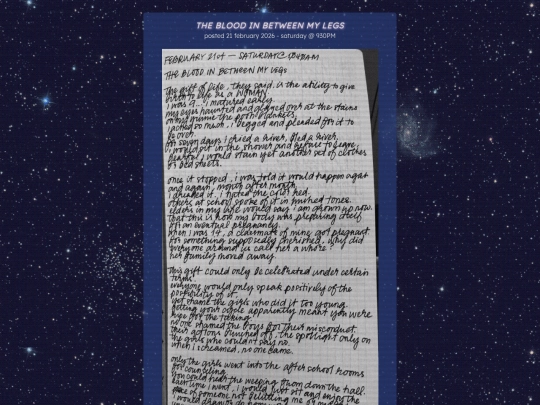 THE BLOOD IN BETWEEN MY LEGS
posted 21 february 2026 - saturday @ 930PM
FEBRUARY 21st — SATURDAY
THE BLOOD IN BETWEEN MY LEGS
the gift of life, they said, is the ability to give
birth to life as a woman.
i was 9... i matured early
my eyes haunted and glazed over at the stains
i cried so much, i begged and pleaded for it to
be over.
for seven days i cried a river, bled a river.
i would sit in the shower and refuse to leave,
fearful i would stain yet another set of clothes
or bed sheets.
once it stopped, i was told it would happen again
and again, month after month
i dreaded it, i hated the
others at school spoke of it in hushed tones.
elders in my life would say i am grown up now.
that this is how my body was preparing itself
for an eventual pregnancy.
when i was 14, a classmate of mine got pregnant.
for something supposedly cherished, why did
everyone around us call her a whore?
her family moved away.
this gift could only be celebrated under certain
terms.
everyone would only speak positively of the
possibility of it,
yet shame the girls who did it too young.
getting your period apparently meant you were
ripe for the taking.
no one shamed the boys for their misconduct.
their actions brushed off, the spotlight only on
the girls who couldn't say no.
when i screamed, no one came.
only the girls went into the after school rooms
for counseling.
you could hear the weeping from down the hall.
each time i went, i would just sit and enjoy the
of someone not belittling me